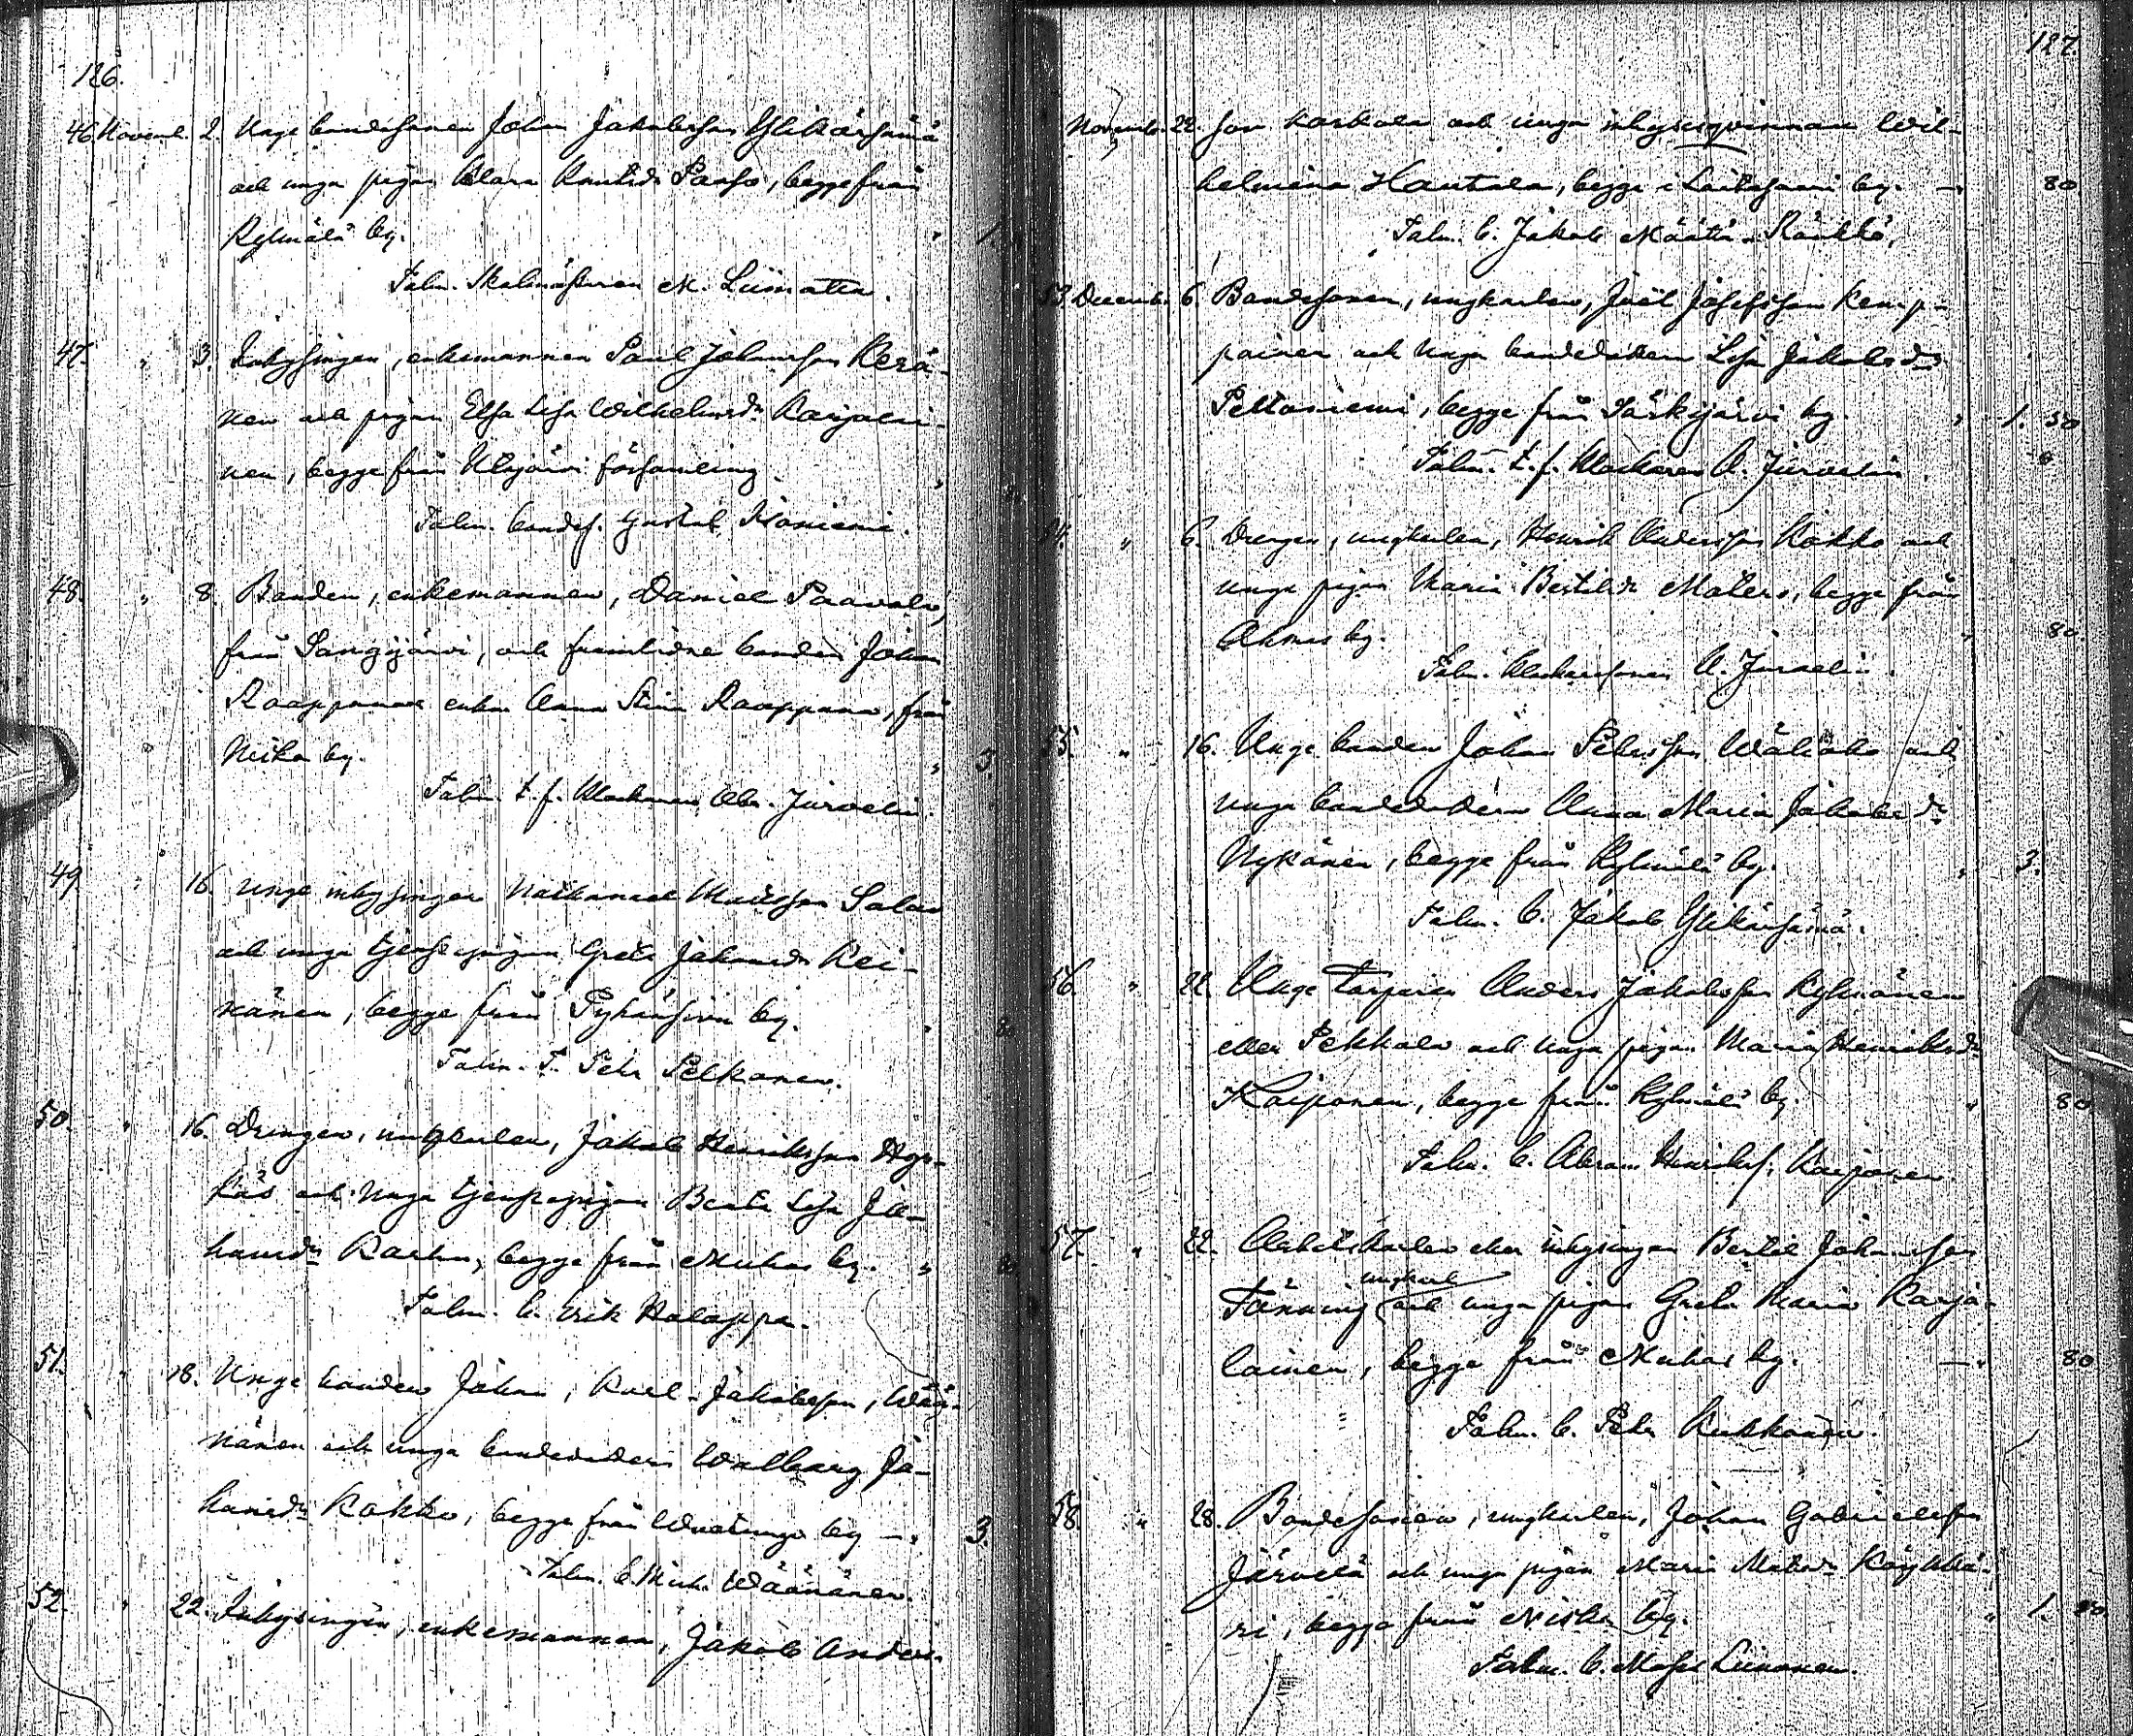 126.
46. Novemb. 2. Unge bondesonen Johan Jakobsson Ylikärsämä
och unga pigan Clara Knutsdr Paaso, begge från
Kylmälä by. " 1.
Talm. Skolmästaren M. Liimatta.
47. " 3. Inhysingen, enkemannen Paul Johansson Kerä-
nen och pigan Elsa Lisa Wilhelmsdr Karjalai-
nen, begge från Utajärvi församling "
Talm. bondes. Gustaf
48. " 8. Bonden, enkemannen, Daniel Paavola,
från Sangijärvi, och framlidne bonden Johan
Raappanas enka Anna Stina Raappana, från
Niska by. " 3.
Talm. t. f. Klockaren Abr. Jurvelin.
49. " 16. Unge inhysingen Nathanael Mattsson Salo
och unga tjenstepigan Greta Johansdr Kei-
nänen, begge från Pyhänsivu by. " 80
Talm. T. Petr Pelkonen.
50. " 16. Drengen, ungkarlen, Jakob Henriksson
och unga tjenstepigan Beata Lisa Jo-
hansdr begge från Muhos by. " 80
Talm. B. Erik Halappa.
51. " 18. Unge bonden Johan, Karl-Jakobsson, Wää-
nänen och unga bondedottern Walborg Jo-
hansdr Kokko, begge från by — " 3.
Talm. B. Mich. Wäänänen.
52. " 22. Inhysingen, enkemannen, Jakob Anders-
127.
Novemb. 22. son Karhula och unga inhysesqvinnan Wil-
helmina Hautala, begge i Laitasaari by. — " 80
Talm. B. Jakob Määttä-Räukkö.
53. Decemb. 6. Bondesonen, ungkarlen, Joël Josefsson Kemp-
painen och unga bondedottern Lisa Jakobsdr
Peltoniemi, begge från Särkijärvi by. " 1. 50
Talm. t. f. Klockaren A. Jurvelin
54. " 6. Drengen, ungkarlen, Henrik Andersson Kokko och
unga pigan Maria Bertilsdr Matero, begge från
Ahmas by. " 80
Talm. Klockaresonen A. Jurvelin.
55. " 16. Unge bonden Johan Petersson Wäliaho och
unga bondedottern Anna Maria Jakobsdr
Nykänen, begge från Kylmälä by. " 3.
Talm. B. Jakob Ylikärsämä.
56. " 22. Unge Torparen Anders Jakobsson Kylmänen
eller Pekkala och unga pigan Maria Henriksdr
Kaiponen, begge från Kylmälä by. " 80
Talm. B. Abram Henrikss. Kaiponen
57. " 22. Arbetskarlen eller inhysingen Bertil Johansson
ungkarl
Tönning och unga pigan Greta Maria Karja-
lainen, begge från Muhos by. — " 80
Talm. B. Petr Kukkonen.
58. " 28. Bondesonen, ungkarlen, Johan Gabrielsson
Järvelä och unga pigan Maria Matsdr Käyhkä-
ri, begge från Niska by. " 1. 80
Talm. B. Moses Liinonen.